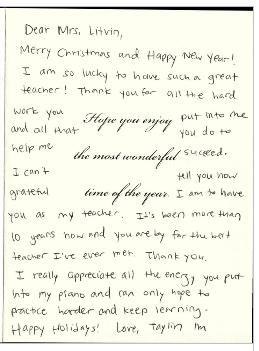 Dear Mrs. Litvin,
Merry Christmas and Happy New Year!
I am so lucky to have such a great
teacher! Thank you for all the hard
work you put into me
Hope you enjoy
and all that you do to
help me succeed.
the most wonderful
I can't tell you how
grateful I am to have
time of the year
you as my teacher. It's been more than
10 years now and you are by far the best
teacher I've ever met. Thank you.
I really appreciate all the energy you put
into my piano and can only hope to
practice harder and keep learning.
Happy Holidays! Love, Taylin